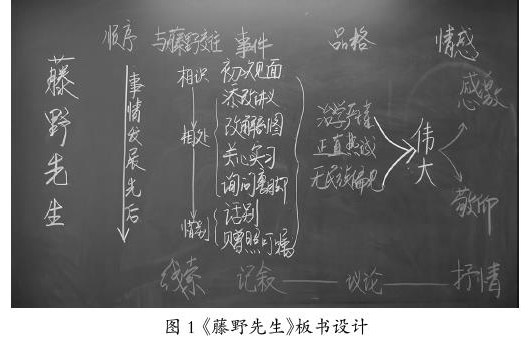 顺序 与藤野交往 事件 品格 情感
藤野先生
事情发展先后
相识
相处
惜别
初次见面
添改讲义
改解剖图
关心实习
询问裹脚
话别
赠照叮嘱
治学严谨
正直热诚
无民族偏见
伟大
感激
敬仰
线索 记叙 议论 抒情
图1《藤野先生》板书设计